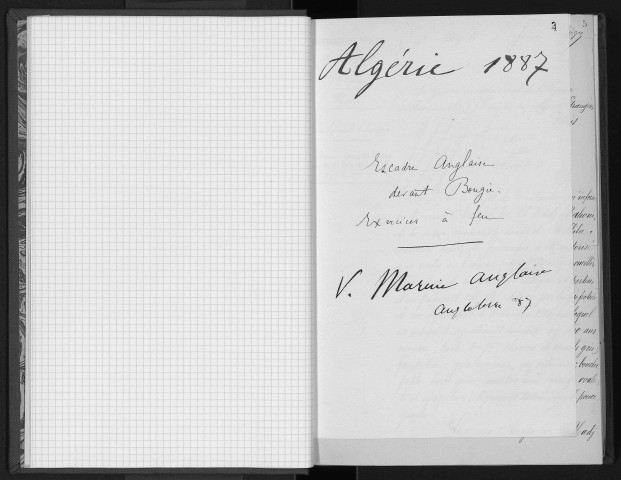 3
Algérie 1887
Escadre Anglaise
devant Bougie.
Exercices à feu
V. Marine anglaise
Angleterre 87